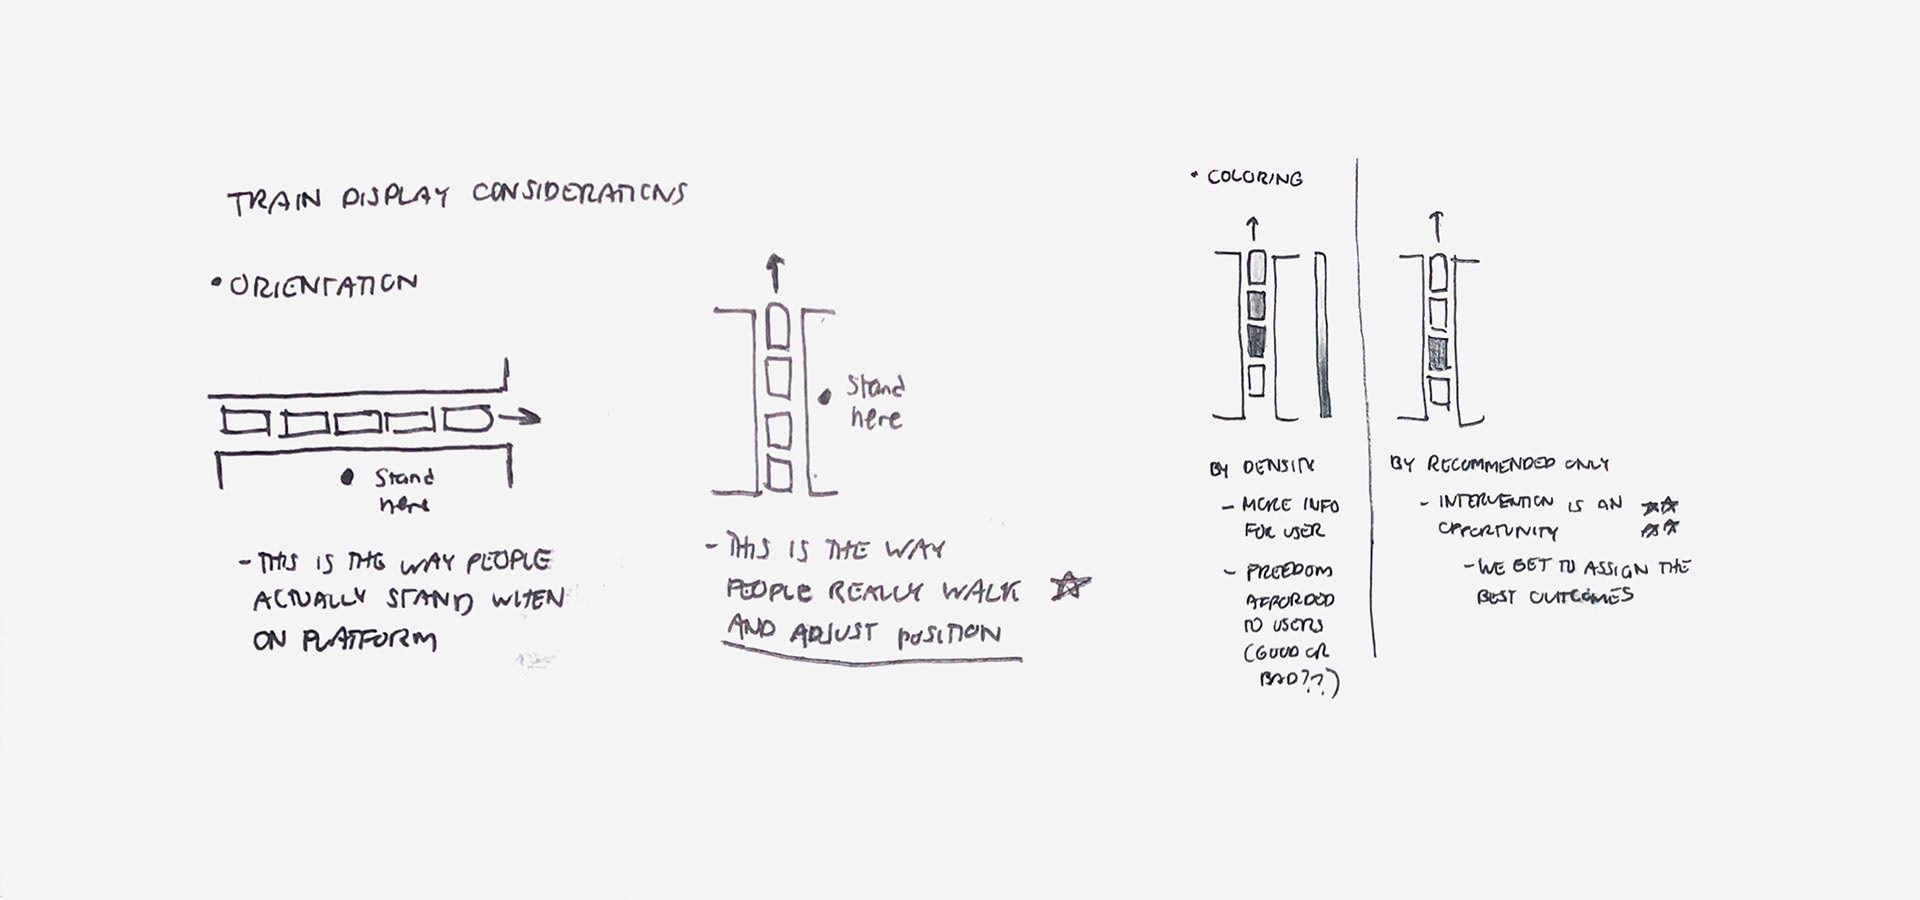 TRAIN DISPLAY CONSIDERATIONS
• ORIENTATION
Stand
here
- THIS IS THE WAY PEOPLE
ACTUALLY STAND WHEN
ON PLATFORM
Stand
here
- THIS IS THE WAY
PEOPLE REALLY WALK
AND ADJUST POSITION
• COLORING
BY DENSITY
- MORE INFO
FOR USER
- FREEDOM
AFFORDED
TO USERS
(GOOD OR
BAD??)
BY RECOMMENDED ONLY
- INTERVENTION IS AN
OPPORTUNITY
- WE GET TO ASSIGN THE
BEST OUTCOMES